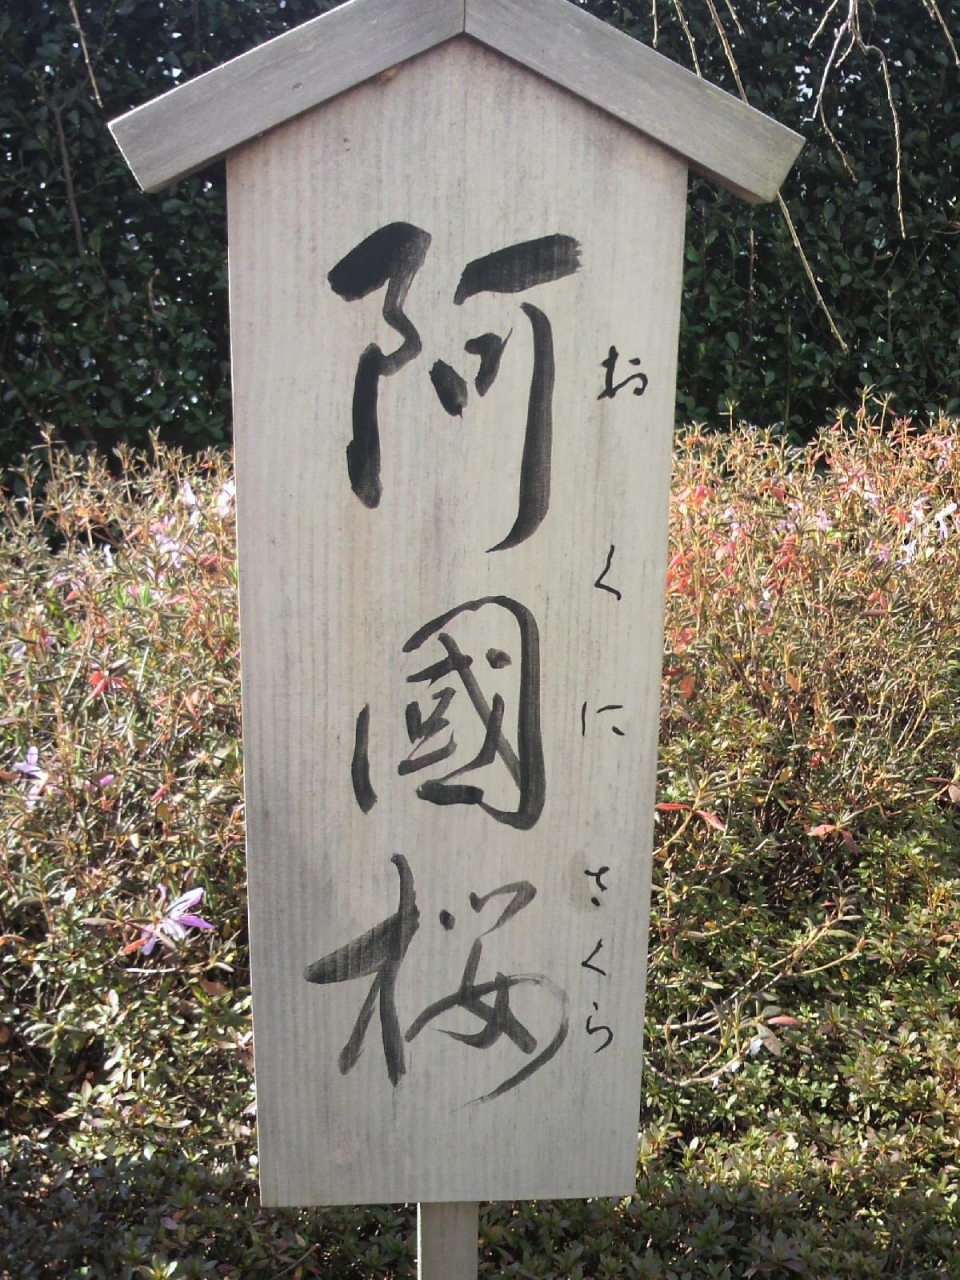 阿國桜
おくにさくら